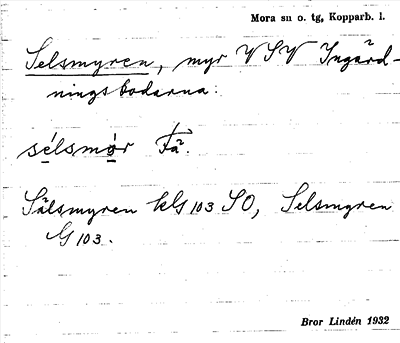 Mora sn o. tg, Kopparb. l.
Selsmyren, myr VSV Ingärd-
ningsbodarna.
sélsmòr Få.
Sälsmyren klG 103 SO, Selsmyren
G 103.
Bror Lindén 1932